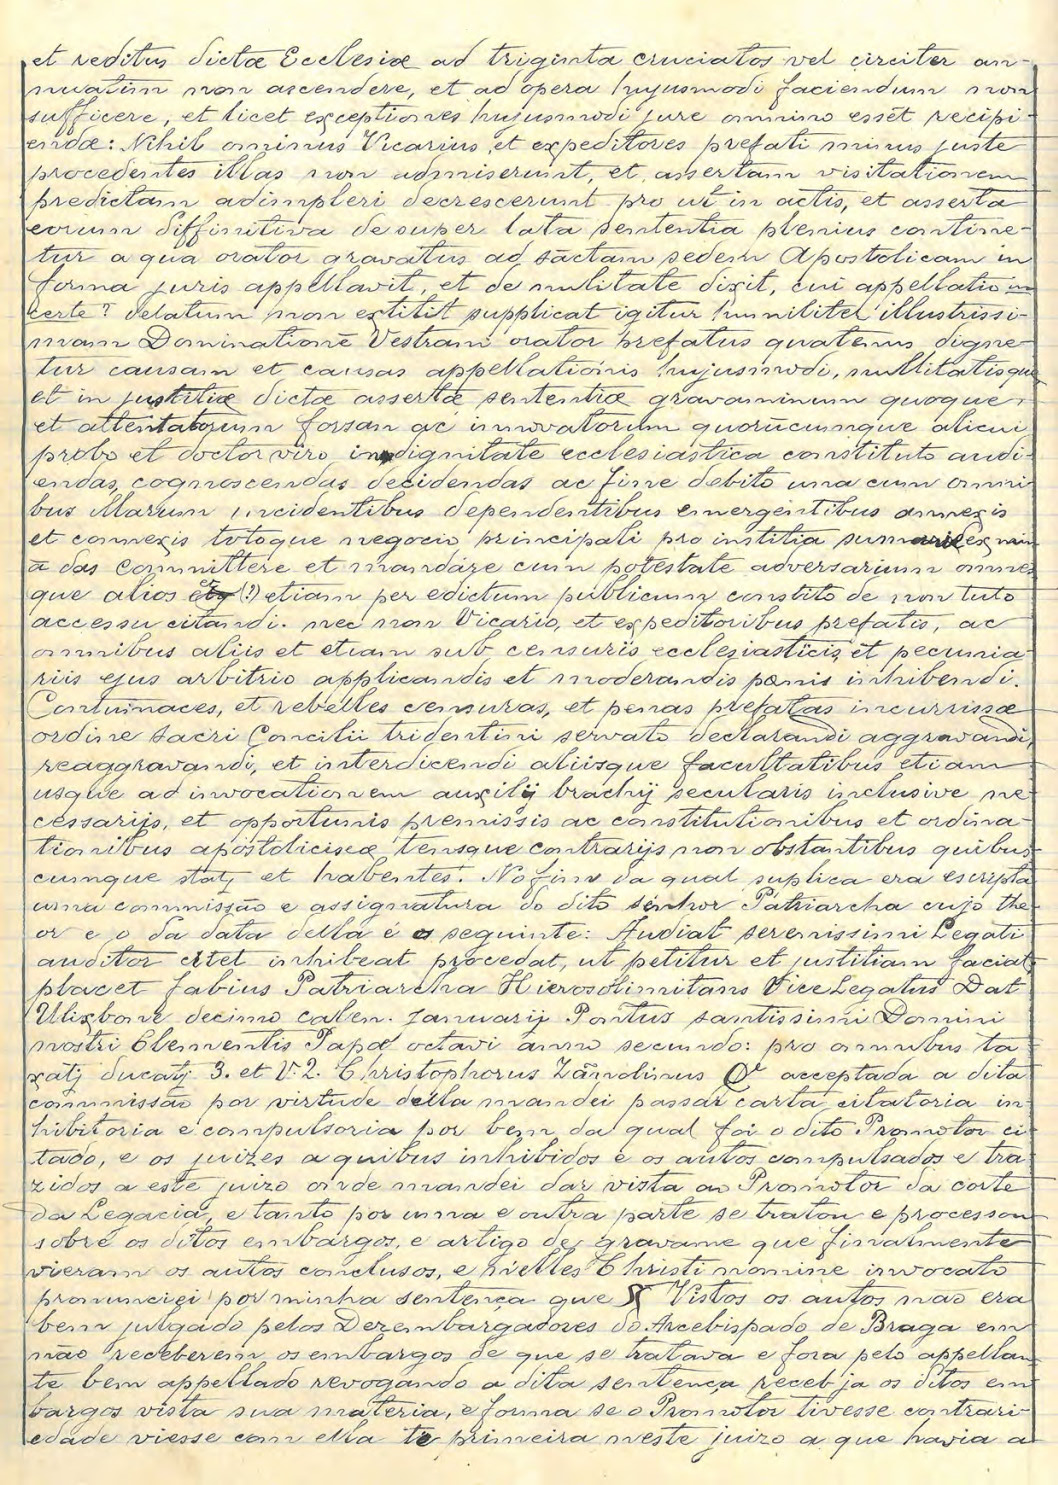 et reditus dictæ Ecclesiæ ad triginta cruciatos vel circiter an-
nuatim non ascendere, et ad opera hujusmodi faciendum non
sufficere, et licet exceptiones hujusmodi jure omnino essēt recipi-
endæ: Nihil ominus Vicarius et expeditores prefati minus juste
procedentes illas non admiserunt, et assertam visitationem
predictam adimpleri decrescerunt pro ut in actis, et asserta
eorum diffinitiva desuper lata sententia plenius contine-
tur a qua orator gravatus ad sāctam sedem Apostolicam in
forma juris appellavit, et de nulitate dixit, cui appellatio in
certe? delatum non extitit supplicat igitur humiliter illustrissi-
mam Dominationē Vestram orator prefatus quatenus digne-
tur causam et causas appellationis hujusmodi, nullitatisque
et in justitiæ dictæ assertæ sententiæ gravaminum quoque
et attentatorum forsan ac innovatorum quorūcumque alicui
probo et doctor viro in dignitate ecclesiastica constituto audi-
endas, cognoscendas decidendas ac fine debito una cum omni-
bus illarum incidentibus dependentibus emergentibus annexis
et connexis totoque negocio principali pro institia summarie exmin
ā das committere et mandare cum potestate adversarium omnes
que alios (?) etiam per edictum publicum constito de non tuto
accessu citandi. nec non Vicario, et expeditoribus prefatis, ac
omnibus aliis et etiam sub censuris ecclesiasticis et pecunia-
riis ejus arbitrio applicandis et moderandis pænis inhibendi.
Contumaces, et rebelles censuras, et penas prefatas incurrisse
ordine sacri Concilii tridentini servato declarandi aggravandi,
reaggravandi, et interdicendi aliisque facultatibus etiam
usque ad invocationem auxilij brachij secularis inclusive ne-
cessarijs, et opportunis premissis ac constitutionibus et ordina-
tionibus apostoliciscæ tensque contrarijs non obstantibus quibus-
cumque statj et habentes. No fim da qual suplica era escripta
uma commissão e assignatura do dito senhor Patriarcha cujo the-
or e o da data della é o seguinte: Audiat serenissimi Legati
auditor citet inhibeat procedat, ut petitur et justitiam faciat
placet fabius Patriarcha Hierosolimitans Vice Legatus Dat
Ulixbone decimo calen. Januarij Pontus santissimi Domini
nostri Clementis Papæ octavi anno secundo: pro omnibus ta-
xatj ducatj 3. et V. 2. Christophorus Zānolinus acceptada a dita
commissão por virtude della mandei passar carta citatoria in-
hibitoria e compulsoria por bem da qual foi o dito Promotor ci-
tado, e os juizes a quibus inhibidos e os autos compulsados e tra-
zidos a este juizo onde mandei dar vista ao Promotor da corte
da Legacia, e tanto por uma e outra parte se tratou e processou
sobre os ditos embargos, e artigo de gravame que finalmente
vieram os autos conclusos, e n'elles Christi nomine invocato
pronunciei por minha sentença que Vistos os autos nao era
bem julgado pelos Dezembargadores do Arcebispado de Braga em
não receberem os embargos de que se tratava e fora pelo appellan-
te bem appellado revogando a dita sentença receb ja os ditos em-
bargos vista sua materia, e forma se o Promotor tivesse contrari-
edade viesse com ella te primeira neste juizo a que havia a